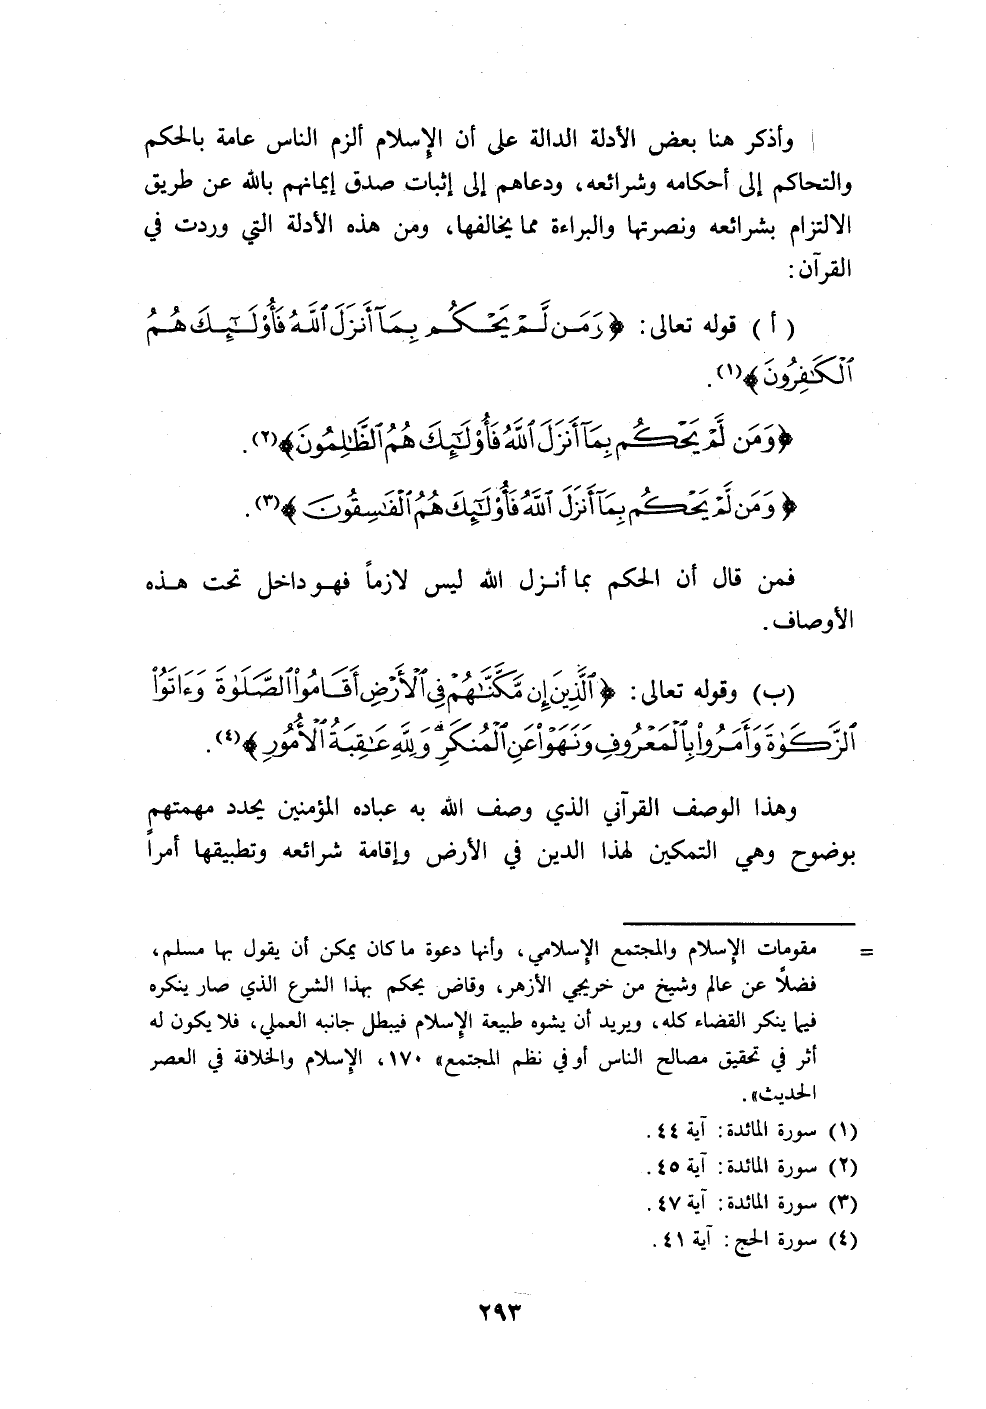 وأذكر هنا بعض الأدلة الدالة على أن الإسلام ألزم الناس عامة بالحكم
والتحاكم إلى أحكامه وشرائعه، ودعاهم إلى إثبات صدق إيمانهم بالله عن طريق
الالتزام بشرائعه ونصرتها والبراءة مما يخالفها، ومن هذه الأدلة التي وردت في
القرآن:
(أ) قوله تعالى: ﴿وَمَن لَّمْ يَحْكُم بِمَآ أَنزَلَ ٱللَّهُ فَأُوْلَٰٓئِكَ هُمُ
ٱلْكَٰفِرُونَ﴾(١).
﴿وَمَن لَّمْ يَحْكُم بِمَآ أَنزَلَ ٱللَّهُ فَأُوْلَٰٓئِكَ هُمُ ٱلظَّٰلِمُونَ﴾(٢).
﴿وَمَن لَّمْ يَحْكُم بِمَآ أَنزَلَ ٱللَّهُ فَأُوْلَٰٓئِكَ هُمُ ٱلْفَٰسِقُونَ﴾(٣).
فمن قال أن الحكم بما أنزل الله ليس لازماً فهو داخل تحت هذه
الأوصاف.
(ب) وقوله تعالى: ﴿ٱلَّذِينَ إِن مَّكَّنَّٰهُمْ فِي ٱلْأَرْضِ أَقَامُواْ ٱلصَّلَوٰةَ وَءَاتَوُاْ
ٱلزَّكَوٰةَ وَأَمَرُواْ بِٱلْمَعْرُوفِ وَنَهَوْاْ عَنِ ٱلْمُنكَرِ ۗ وَلِلَّهِ عَٰقِبَةُ ٱلْأُمُورِ﴾(٤).
وهذا الوصف القرآني الذي وصف الله به عباده المؤمنين يحدد مهمتهم
بوضوح وهي التمكين لهذا الدين في الأرض وإقامة شرائعه وتطبيقها أمراً
= مقومات الإسلام والمجتمع الإسلامي، وأنها دعوة ما كان يمكن أن يقول بها مسلم،
فضلاً عن عالم وشيخ من خريجي الأزهر، وقاض يحكم بهذا الشرع الذي صار ينكره
فيما ينكر القضاء كله، ويريد أن يشوه طبيعة الإسلام فيبطل جانبه العملي، فلا يكون له
أثر في تحقيق مصالح الناس أو في نظم المجتمع» ١٧٠، الإسلام والخلافة في العصر
الحديث».
(١) سورة المائدة: آية ٤٤.
(٢) سورة المائدة: آية ٤٥.
(٣) سورة المائدة: آية ٤٧.
(٤) سورة الحج: آية ٤١.
٢٩٣